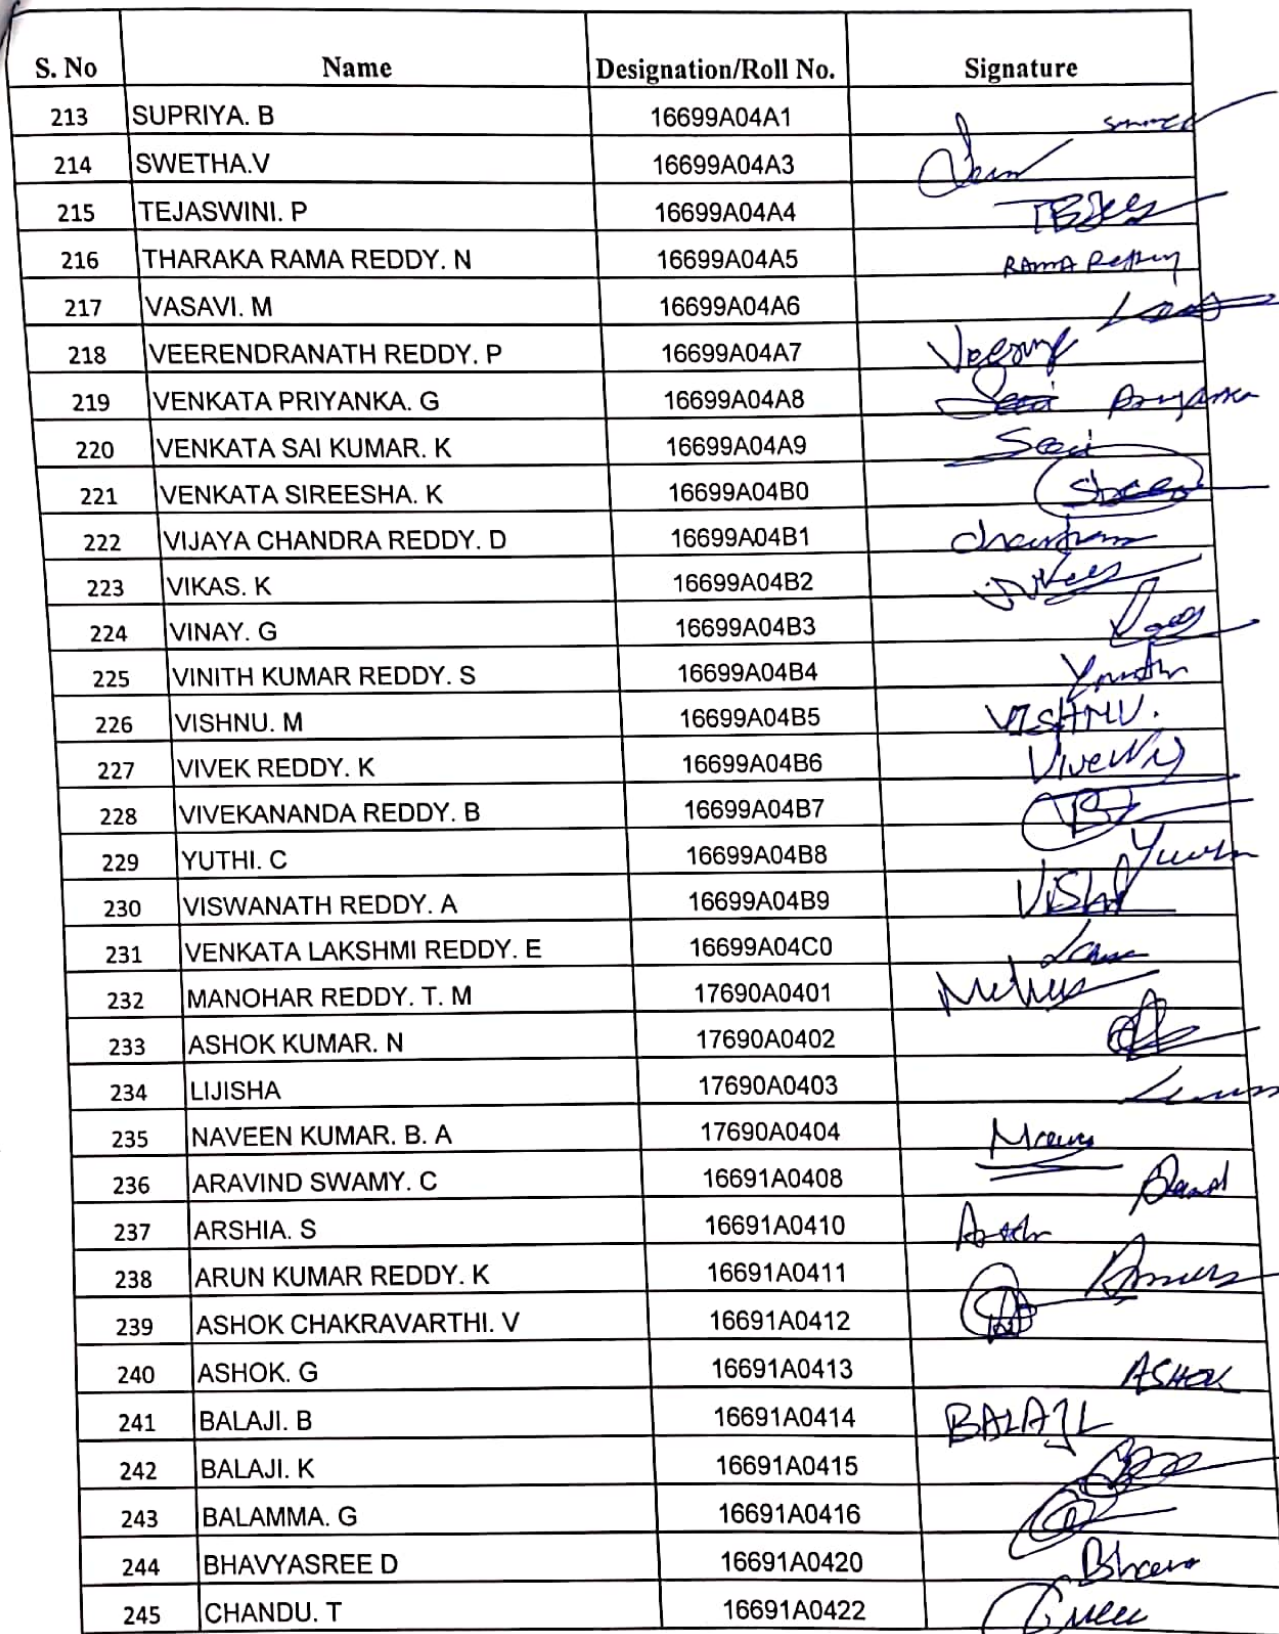 S. No Name Designation/Roll No. Signature
213 SUPRIYA. B 16699A04A1
214 SWETHA.V 16699A04A3
215 TEJASWINI. P 16699A04A4
216 THARAKA RAMA REDDY. N 16699A04A5 RAMA Reddy
217 VASAVI. M 16699A04A6
218 VEERENDRANATH REDDY. P 16699A04A7
219 VENKATA PRIYANKA. G 16699A04A8 Priyanka
220 VENKATA SAI KUMAR. K 16699A04A9
221 VENKATA SIREESHA. K 16699A04B0
222 VIJAYA CHANDRA REDDY. D 16699A04B1
223 VIKAS. K 16699A04B2
224 VINAY. G 16699A04B3
225 VINITH KUMAR REDDY. S 16699A04B4
226 VISHNU. M 16699A04B5 VISHNU.
227 VIVEK REDDY. K 16699A04B6
228 VIVEKANANDA REDDY. B 16699A04B7
229 YUTHI. C 16699A04B8
230 VISWANATH REDDY. A 16699A04B9
231 VENKATA LAKSHMI REDDY. E 16699A04C0
232 MANOHAR REDDY. T. M 17690A0401
233 ASHOK KUMAR. N 17690A0402
234 LIJISHA 17690A0403
235 NAVEEN KUMAR. B. A 17690A0404
236 ARAVIND SWAMY. C 16691A0408
237 ARSHIA. S 16691A0410
238 ARUN KUMAR REDDY. K 16691A0411
239 ASHOK CHAKRAVARTHI. V 16691A0412
240 ASHOK. G 16691A0413 ASHOK
241 BALAJI. B 16691A0414 BALAJI
242 BALAJI. K 16691A0415
243 BALAMMA. G 16691A0416
244 BHAVYASREE D 16691A0420
245 CHANDU. T 16691A0422